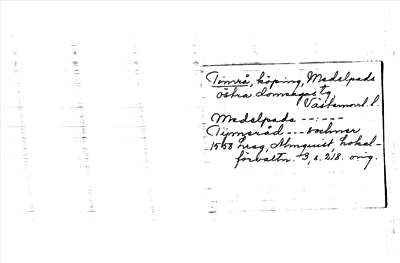 Timrå, köping, Medelpads
östra domsagas tg,
Västernorrl. l.
Medelpads --:---
Timmeråd --- socknar
1558 hreg, Almquist, Lokal-
förvaltn. 3, s. 218. orig.